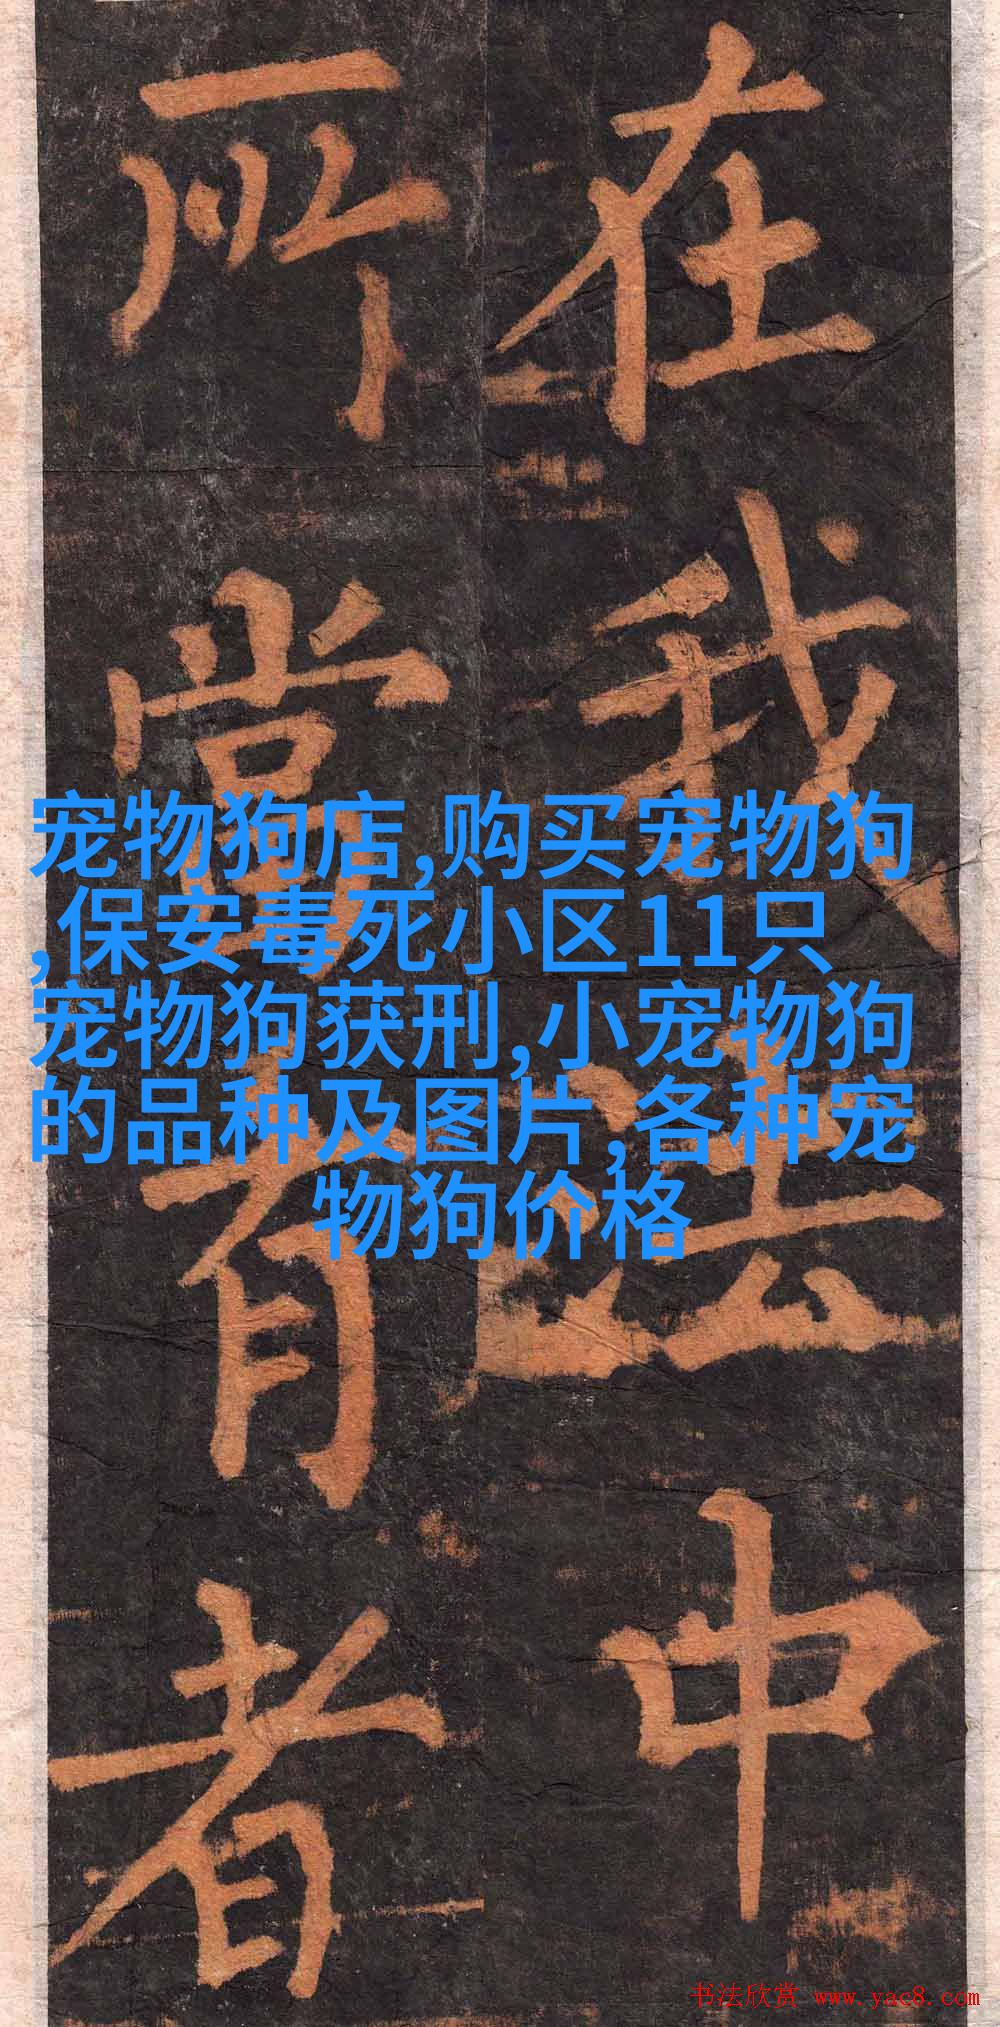 在我法中
所有者
宠物狗店,购买宠物狗
,保安毒死小区11只
宠物狗获刑,小宠物狗
的品种及图片,各种宠
物狗价格
书法欣赏 www.yac8.com